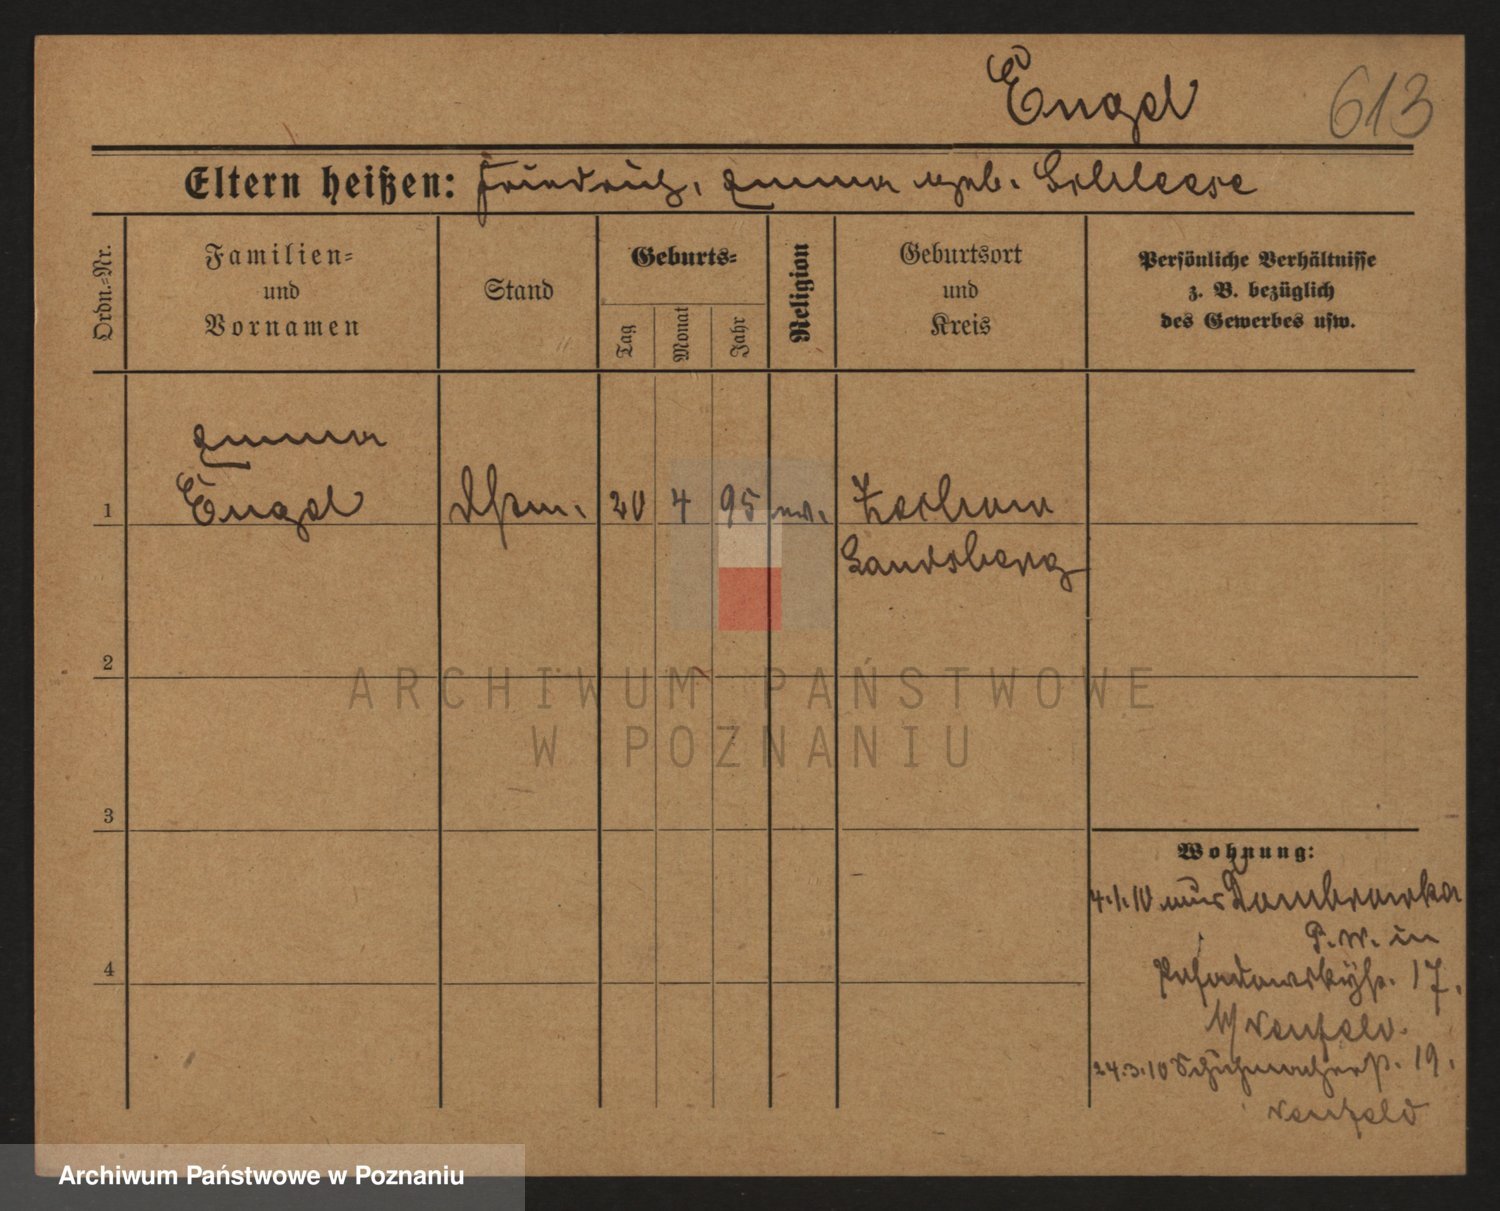 Engel
613
Eltern heißen: Friedrich, Emma geb. Schleese
Ordn.-Nr.
Familien-
und
Vornamen
Stand
Geburts-
Tag
Monat
Jahr
Religion
Geburtsort
und
Kreis
Persönliche Verhältnisse
z. B. bezüglich
des Gewerbes usw.
Emma
1 Engel 20 4 95 ev. Zechow
Landsberg
2
ARCHIWUM PAŃSTWOWE
W POZNANIU
3
Wohnung:
4.1.10 aus Dombrowka
P.W. in
4
Posadowskystr. 17.
b/ Neufeld.
24.3.10 Schuhmacherstr. 19.
Neufeld
Archiwum Państwowe w Poznaniu